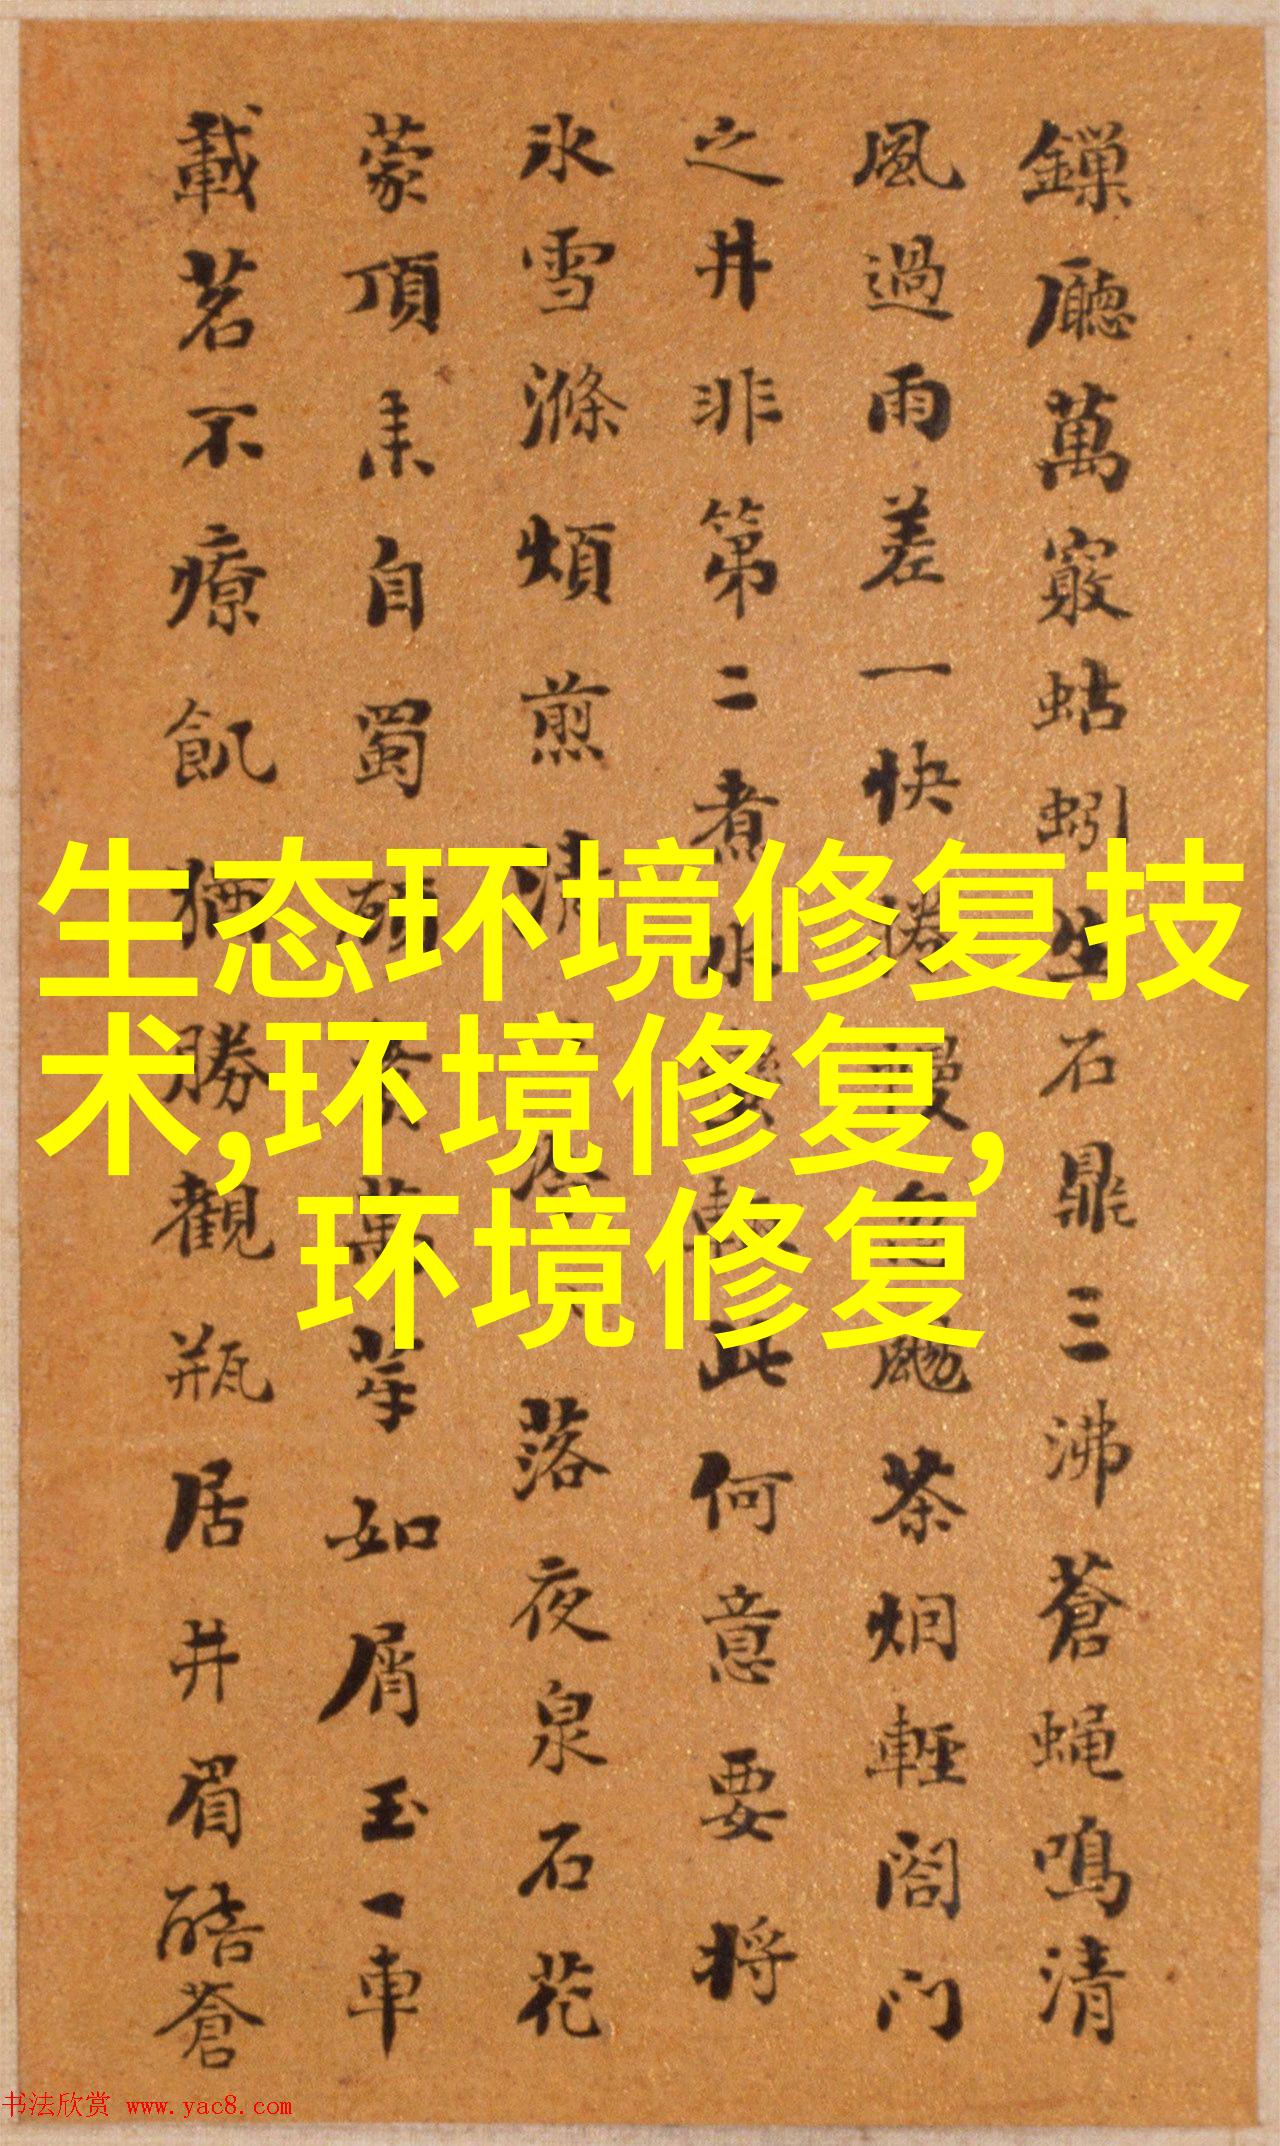 鏁廳萬竅蚯蚓生石鼎三沸蒼蝇鳴清
風過雨差一快
忽颺茶烟輕閤門
之井非第二煮水
此何意要将
氷雪滌煩煎清
落夜泉石花
蒙頂來自蜀
萬芽如屑玉一車
載茗不療飢猶勝觀瓶居井眉酷蒼
生态环境修复技
术,环境修复,
环境修复
书法欣赏 www.yac8.com